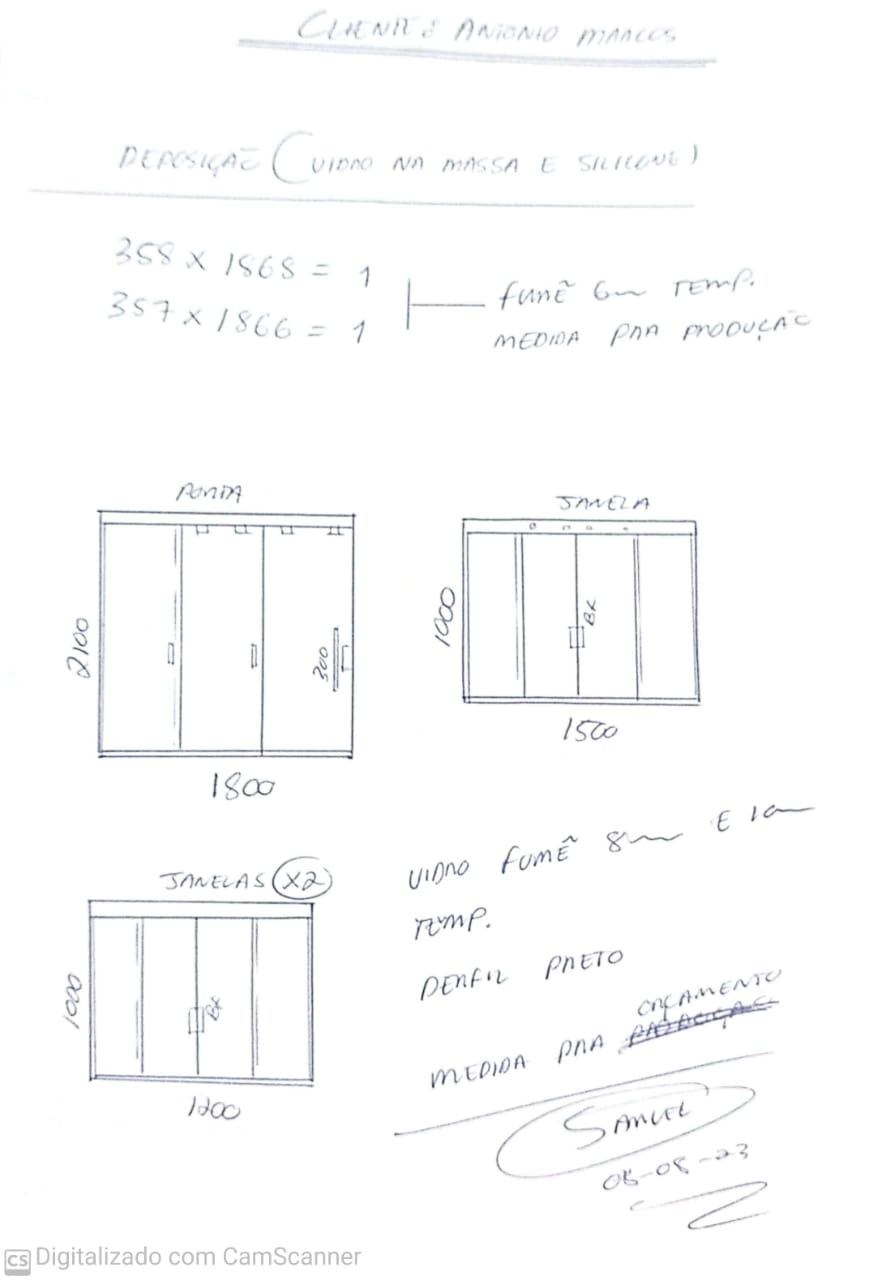 CLIENTE: ANTONIO MARCOS
DEPOSIÇÃO (VIDRO NA MASSA E SILICONE)
358 x 1868 = 1
357 x 1866 = 1
FUMÊ 6mm TEMP.
MEDIDA PRA PRODUÇÃO
PORTA
2100
300
1800
JANELA
1000
BX
1500
JANELAS X2
1000
BX
1200
VIDRO FUMÊ 8mm E 10mm
TEMP.
PERFIL PRETO
MEDIDA PRA ORÇAMENTO
SAMUEL
08-08-23
CS Digitalizado com CamScanner